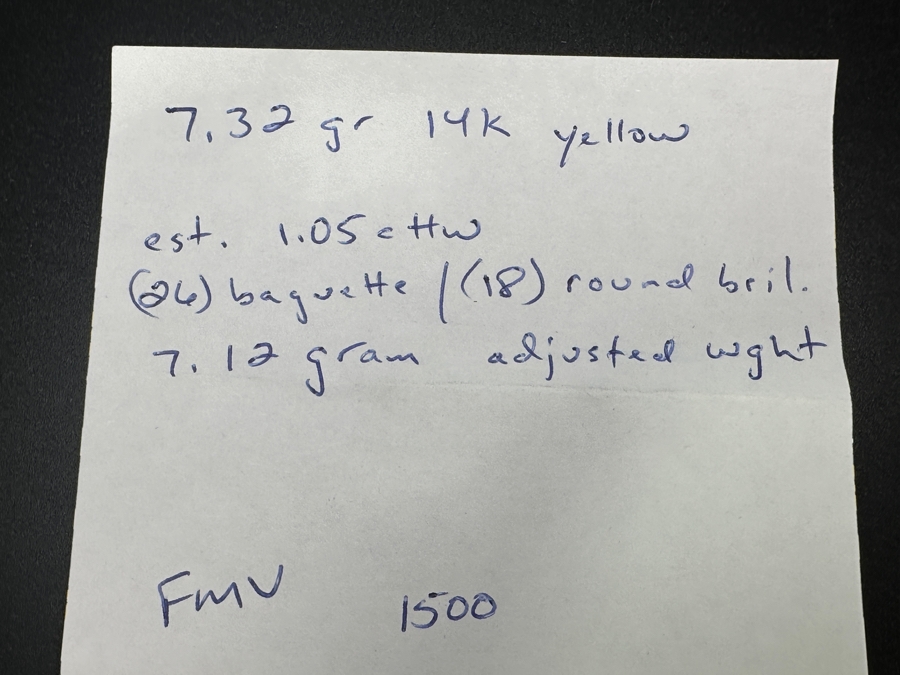 7.32 gr 14K yellow
est. 1.05 cttw
(26) baguette / (18) round bril.
7.12 gram adjusted wght
FMV 1500